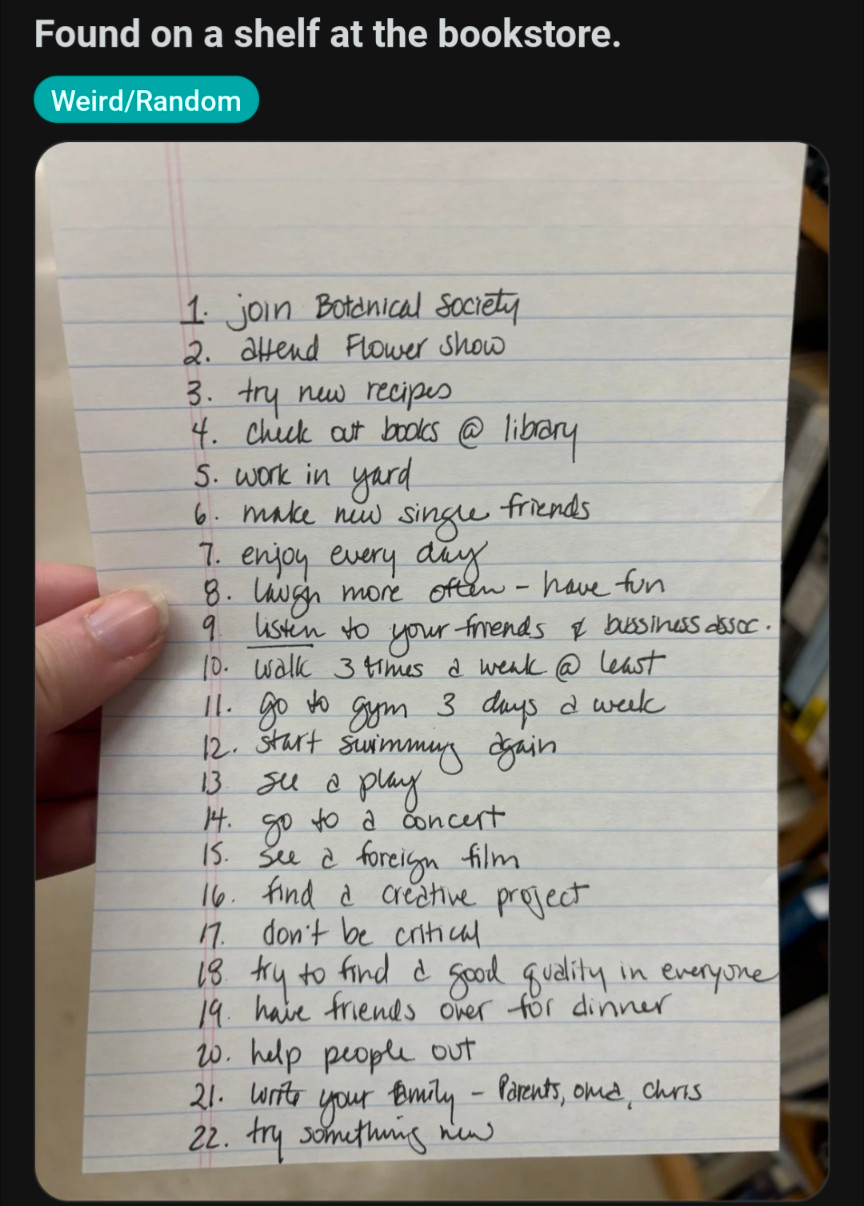 Found on a shelf at the bookstore.
Weird/Random
1. join Botanical Society
2. attend Flower show
3. try new recipes
4. check out books @ library
5. work in yard
6. make new single friends
7. enjoy every day
8. laugh more often - have fun
9. listen to your friends & bussiness assoc.
10. walk 3 times a weak @ least
11. go to gym 3 days a week
12. start swimming again
13. see a play
14. go to a concert
15. see a foreign film
16. find a creative project
17. don't be critical
18. try to find a good quality in everyone
19. have friends over for dinner
20. help people out
21. write your family - Parents, oma, Chris
22. try something new